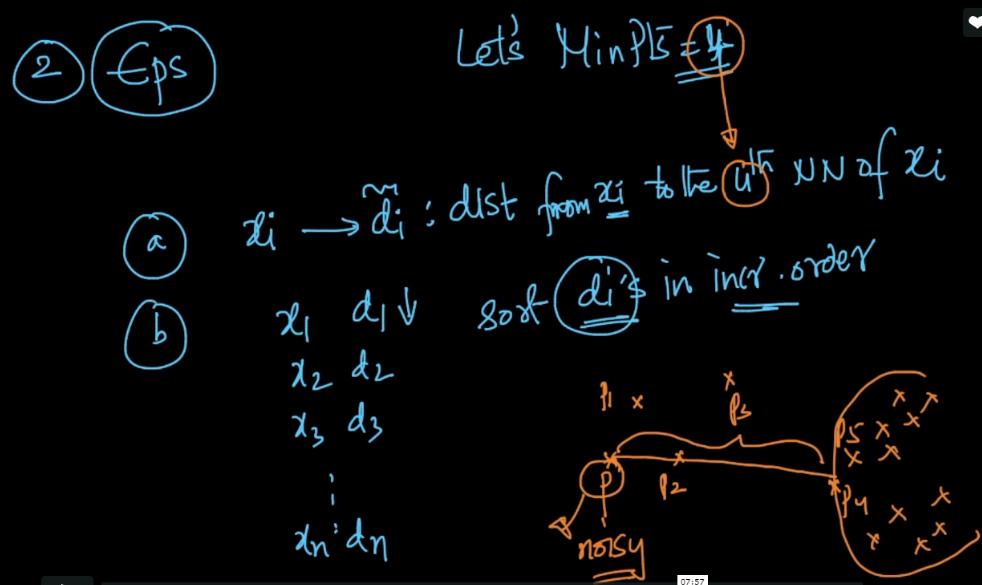 2 Eps
Let's MinPts = 4
a xi → di : dist from xi to the 4th NN of xi
b x1 d1 ↓ sort di's in incr. order
x2 d2
x3 d3
⋮
xn dn
P1
P3
P5
P
P2
P4
noisy
07:57